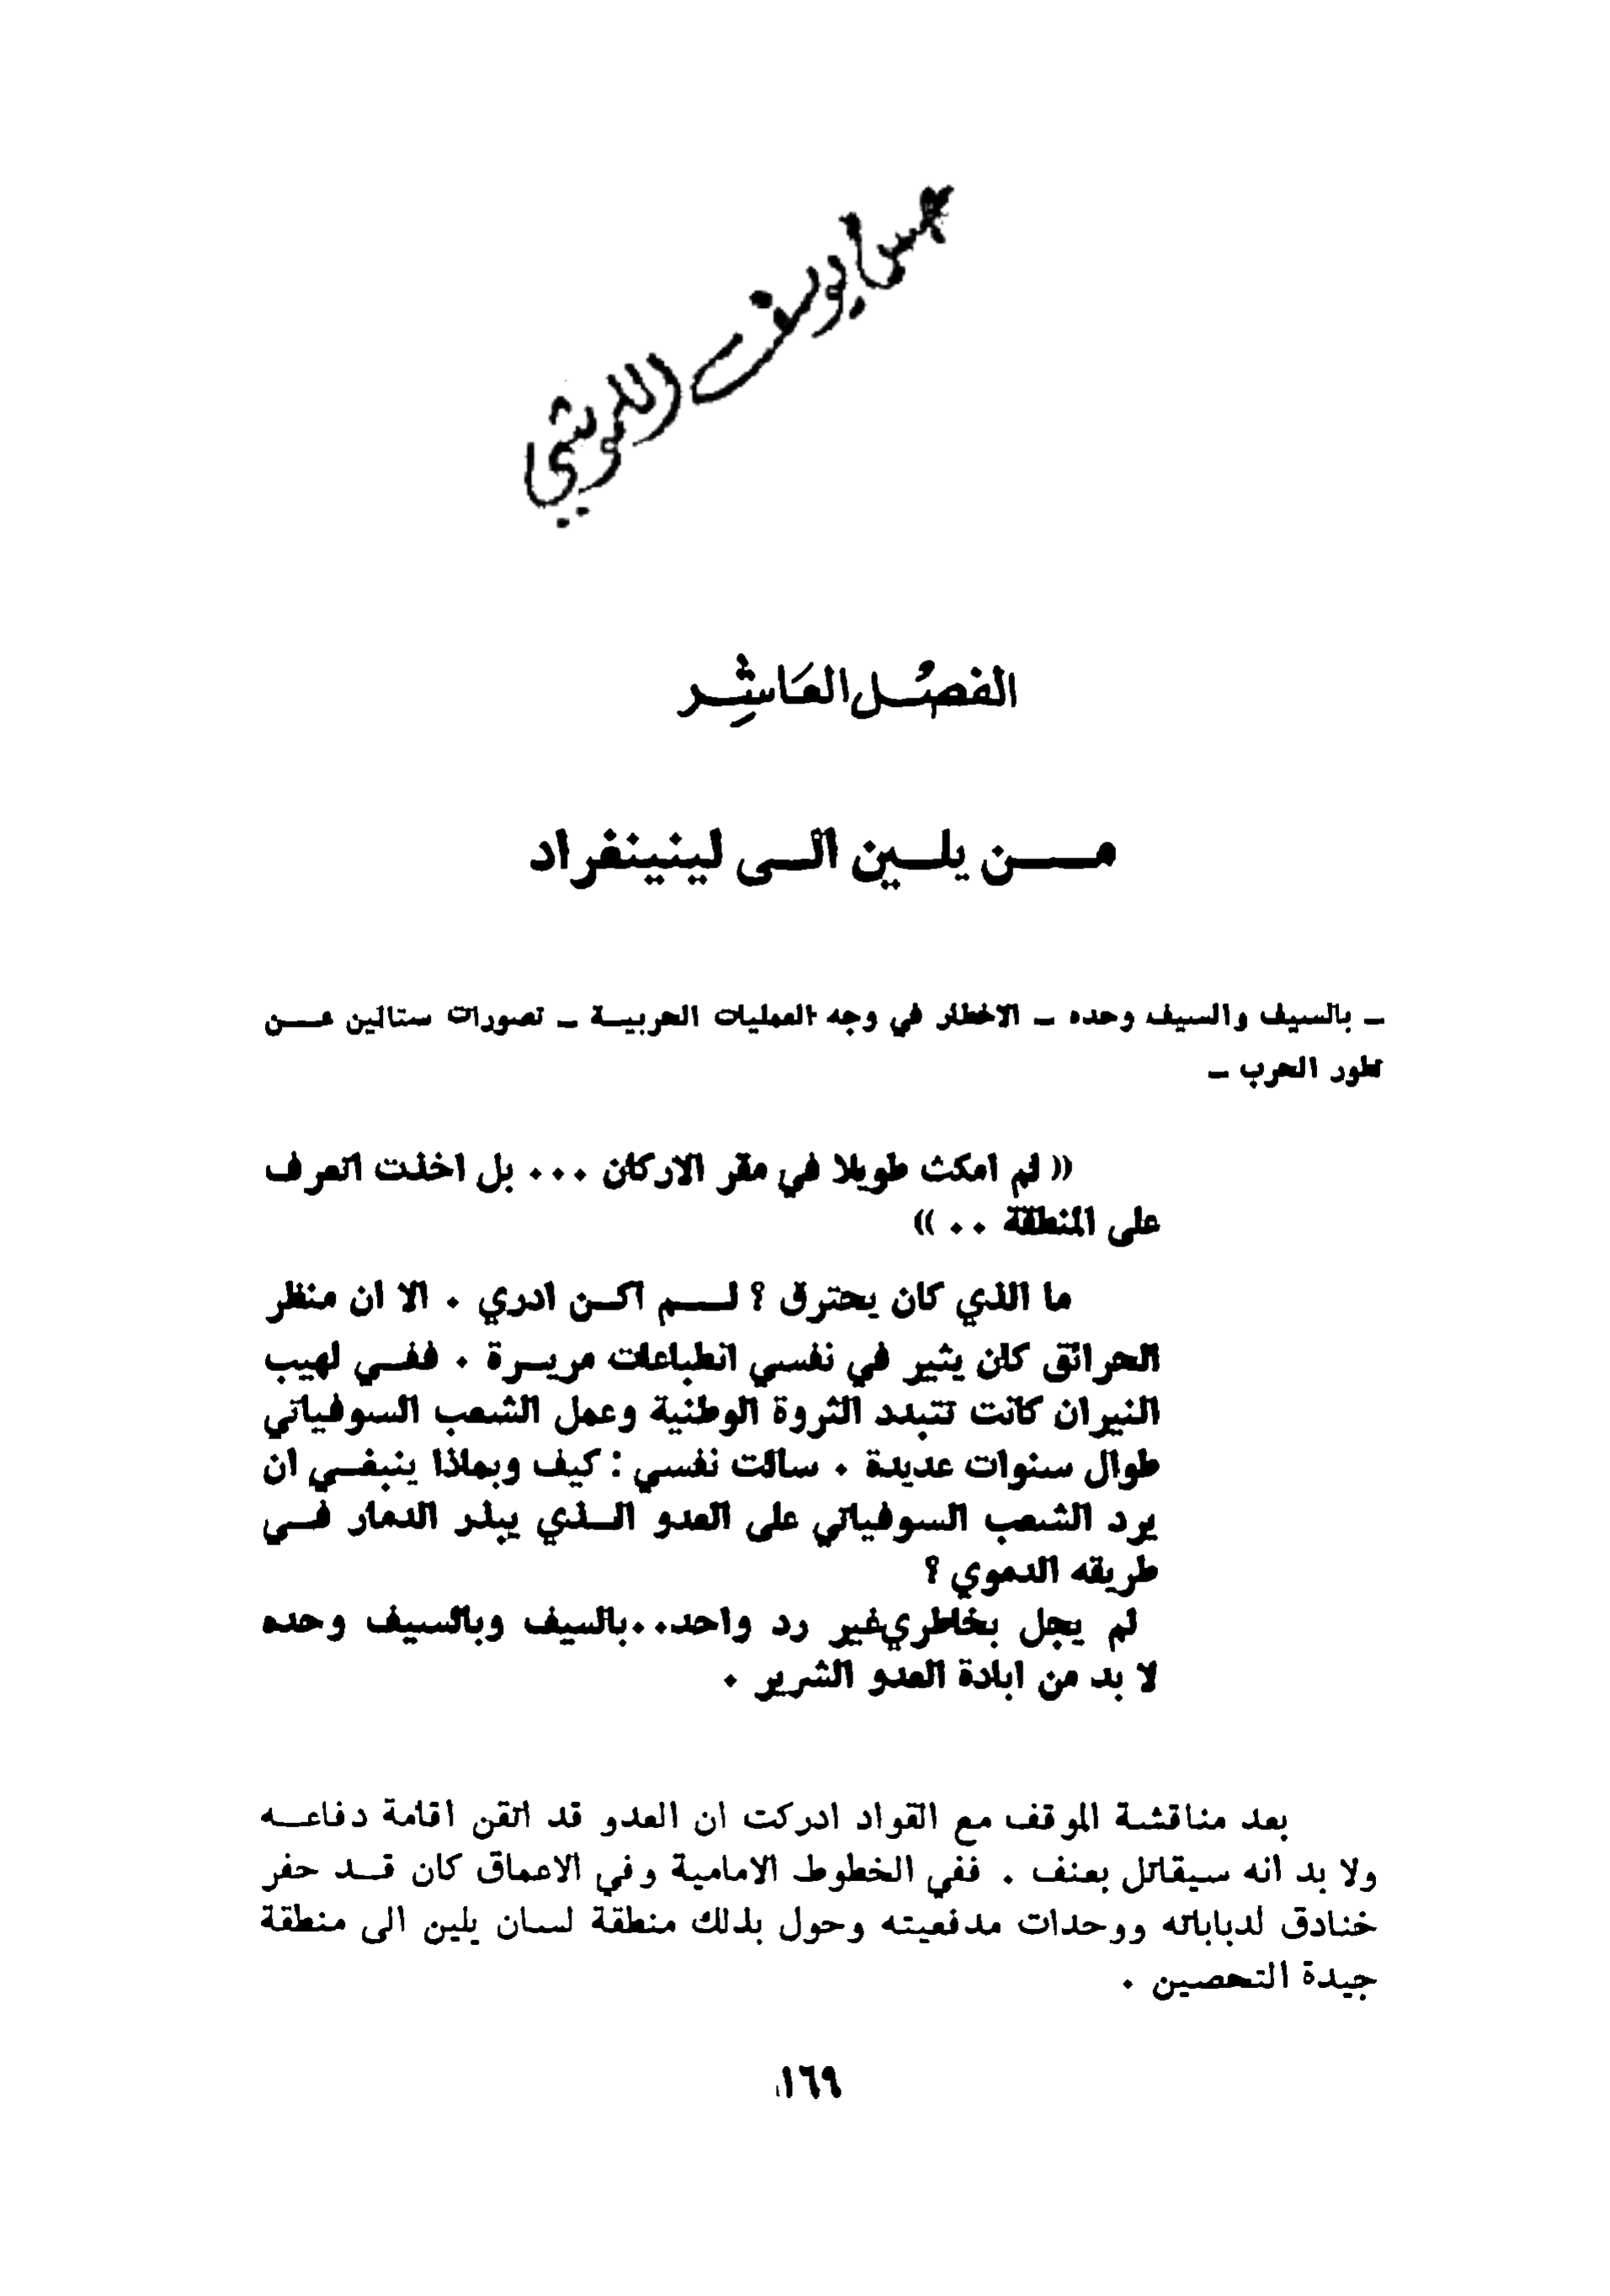 يوسف
الفصل العاشر
مـن يلـين الـى لينينغراد
ـ بالسيف والسيف وحده ـ الاخطار في وجه العمليات الحربيـة ـ تصورات ستالين عـن
تطور الحرب ـ
« لم امكث طويلا في مقر الاركان ... بل اخذت اتعرف
على المنطقة .. »
ما الذي كان يحترق ؟ لـم اكـن ادري . الا ان منظر
الحرائق كان يثير في نفسي انطباعات مريـرة . ففـي لهيب
النيران كانت تتبدد الثروة الوطنية وعمل الشعب السوفياتي
طوال سنوات عديدة . سالت نفسي : كيف وبماذا ينبغـي ان
يرد الشعب السوفياتي على العدو الـذي يبذر الدمار فـي
طريقه الدموي ؟
لم يجل بخاطري غير رد واحد..بالسيف وبالسيف وحده
لا بد من ابادة العدو الشرير .
بعد مناقشة الموقف مع القواد ادركت ان العدو قد اتقن اقامة دفاعـه
ولا بد انه سيقاتل بعنف . ففي الخطوط الامامية وفي الاعماق كان قـد حفر
خنادق لدباباته ووحدات مدفعيته وحول بذلك منطقة لسان يلين الى منطقة
جيدة التحصين .
١٦٩